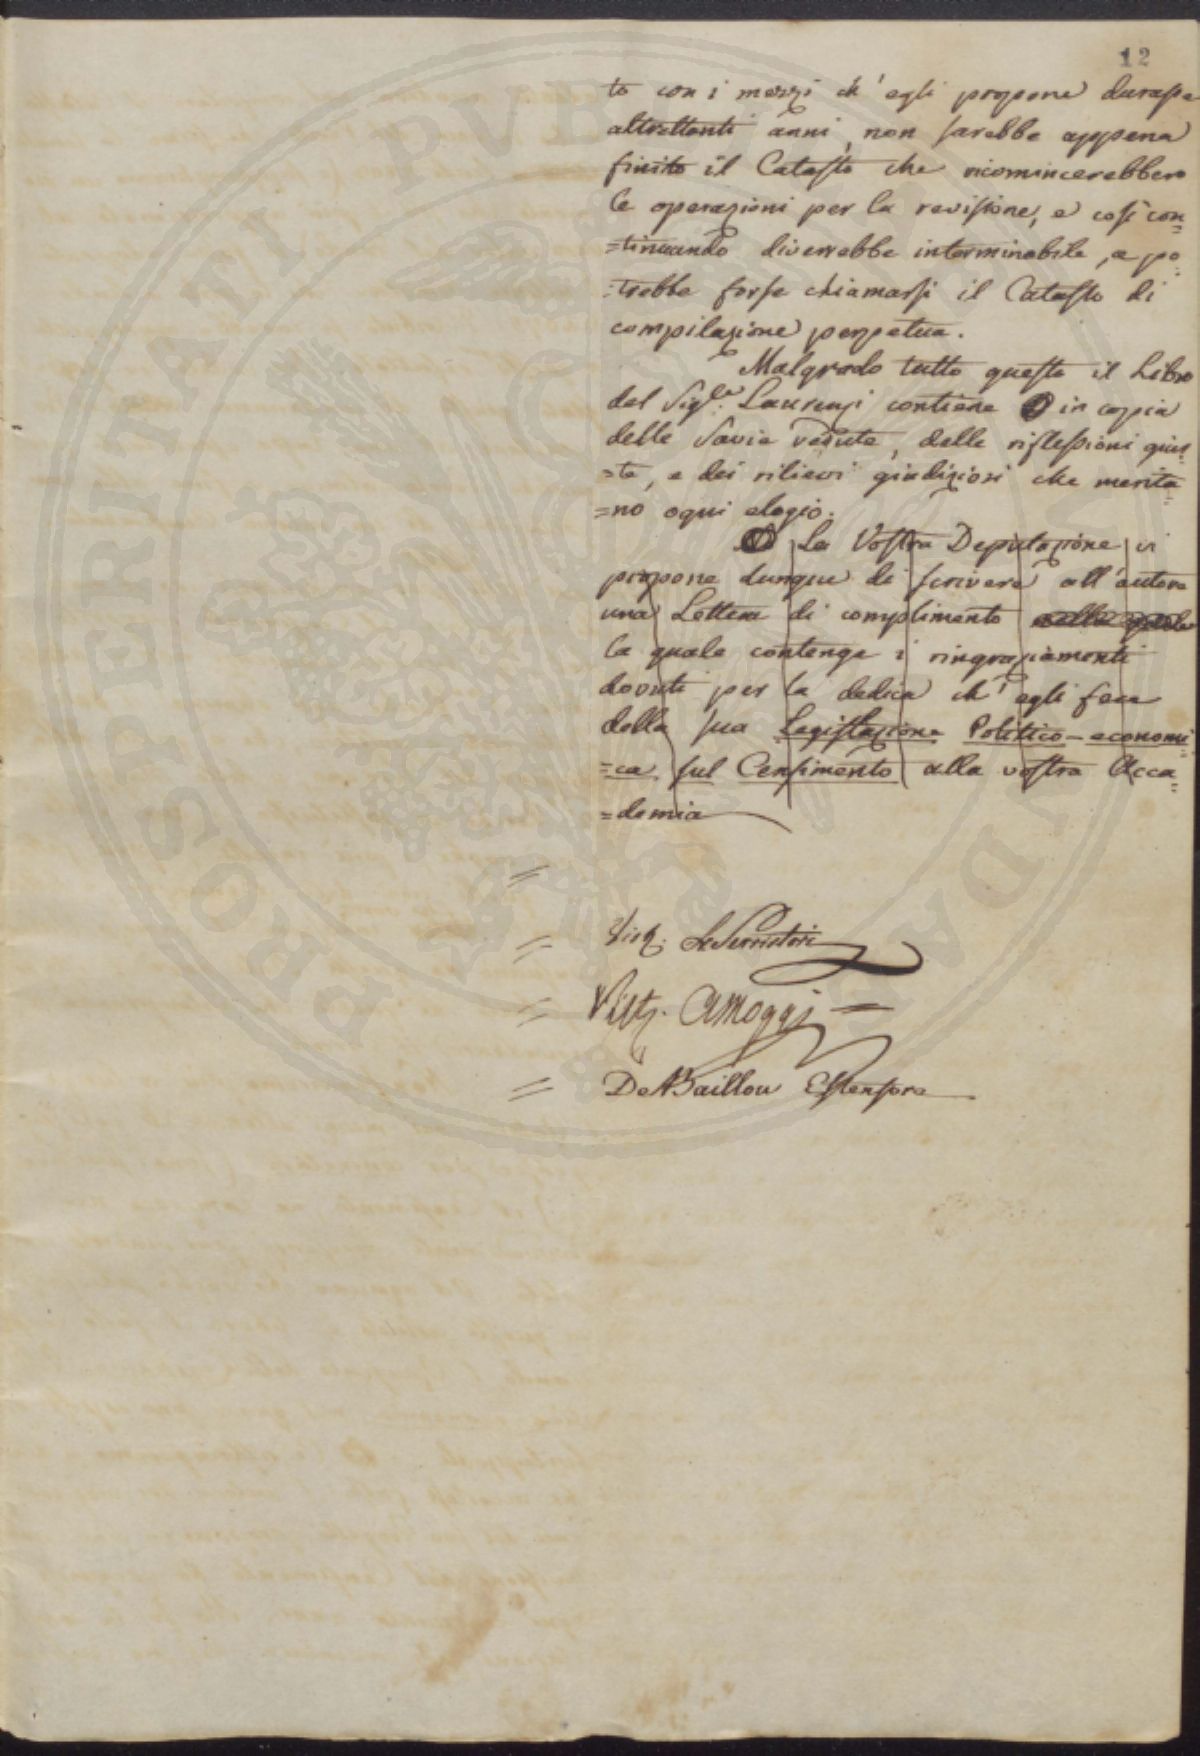 12
to con i mezzi ch'egli propone durasse
altrettanti anni, non sarebbe appena
finito il Catasto che ricomincerebbero
le operazioni per la revisione, e così con=
=tinuando diverrebbe interminabile, e po=
=trebbe forse chiamarsi il Catasto di
compilazione perpetua.
Malgrado tutto questo il Libro
del Sig.re Laurenzi contiene in copia
delle Savie vedute, delle riflessioni gius=
=te, e dei rilievi giudiziosi che merita=
=no ogni elogio.
La Vostra Deputazione vi
propone dunque di scrivere all'autore
una Lettera di complimento
la quale contenga i ringraziamenti
dovuti per la dedica ch'egli fece
della sua Legislazione Politico-economi=
=ca sul Censimento alla vostra Acca=
=demia
= L. Serristori
= A Moggi =
= De Baillou Estensore
PROSPERITATI PVBLICAE